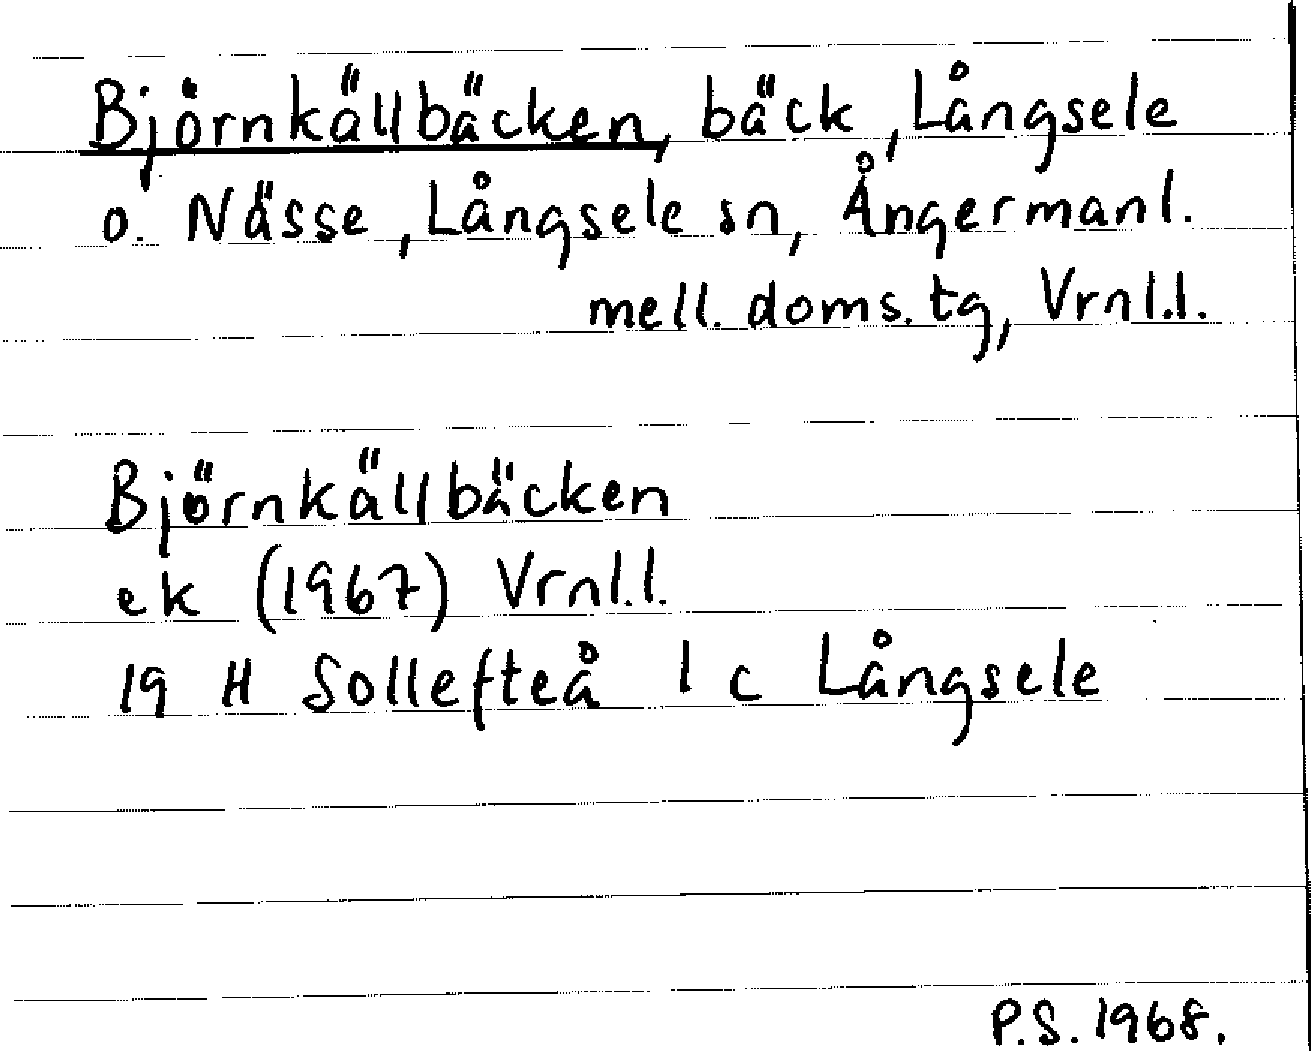 Björnkällbäcken, bäck, Långsele
o. Nässe, Långsele sn, Ångermanl.
mell. doms. tg, Vrnl.l.
Björnkällbäcken
ek (1967) Vrnl.l.
19 H Sollefteå 1 c Långsele
P.S. 1968.